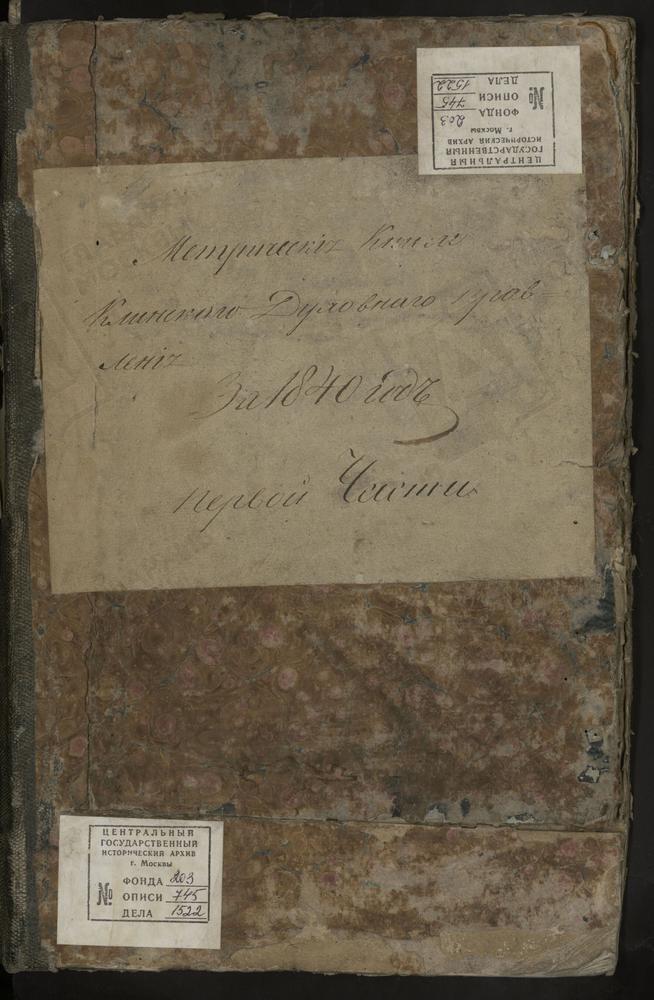 ЦЕНТРАЛЬНЫЙ
ГОСУДАРСТВЕННЫЙ
ИСТОРИЧЕСКИЙ АРХИВ
г. Москвы
№ ФОНДА 203
ОПИСИ 745
ДЕЛА 1522
Метрическiя Книги
Клинского Духовнаго прав-
ленiя
За 1840 годъ
первой Части
ЦЕНТРАЛЬНЫЙ
ГОСУДАРСТВЕННЫЙ
ИСТОРИЧЕСКИЙ АРХИВ
г. Москвы
№ ФОНДА 203
ОПИСИ 745
ДЕЛА 1522